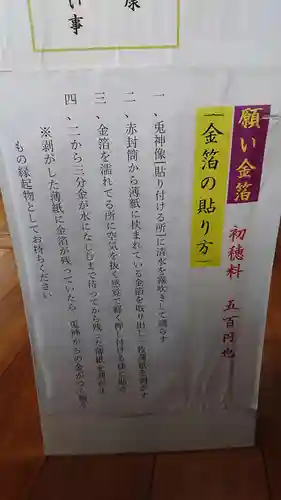 康
い事
願い金箔
初穂料 五百円也
「金箔の貼り方」
一、兎神像「貼り付ける所」に清水を霧吹きして濡らす
二、赤封筒から薄紙に挟まれている金箔を取り出し一枚薄紙を剥がす
三、金箔を濡れてる所に空気を抜く感覚で軽く押し付ける様に貼る
四、二から三分金が水になじむまで待ってから残った薄紙を剥がす
※剥がした薄紙に金箔が残っていたら 兎神からの金が
もの縁起物としてお持ちください